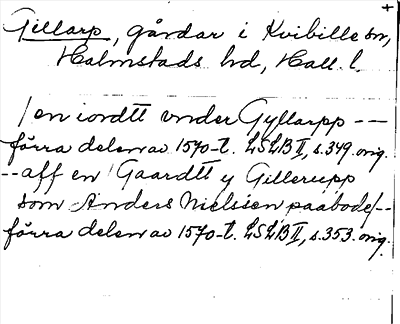 Gillarp, gårdar i Kvibille sn,
Halmstads hd, Hall. l.
/ en iordtt vnder Gyllarpp --
förra delen av 1570-t. LSLB II, s.349. orig.
-- aff en / Gaardtt y Gillerupp
som Anders Nielssen paabode/--
förra delen av 1570-t. LSLB II, s.353. orig.